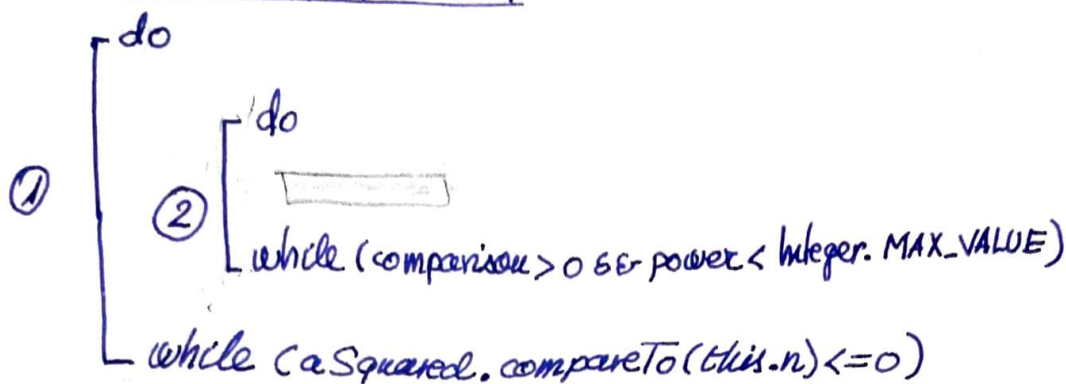 do
do
① ②
while (comparison > 0 && power < Integer.MAX_VALUE)
while (aSquared.compareTo(this.n) <= 0)